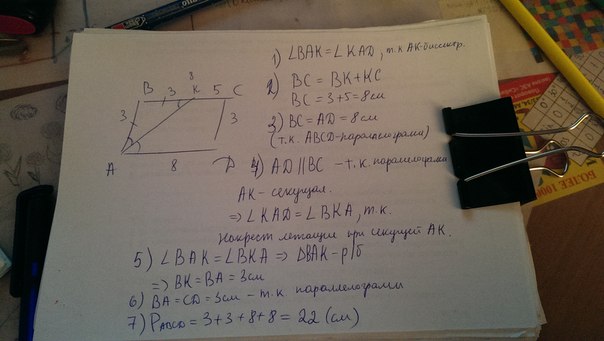 8
B 3 K 5 C
3
3
A
8
D
1) ∠BAK = ∠KAD, т.к АК-биссктр.
2) BC = BK + KC
BC = 3 + 5 = 8 см
3) BC = AD = 8см
(т.к. ABCD-параллелограмм)
4) AD || BC - т.к. параллелограмм
АК - секущая.
⇒ ∠KAD = ∠BKA, т.к.
накрест лежащие при секущей АК.
5) ∠BAK = ∠BKA ⇒ ΔBAK - р/б
⇒ BK = BA = 3см
6) BA = CD = 3см - т.к параллелограмм
7) PABCD = 3 + 3 + 8 + 8 = 22 (см)
БОЛЕЕ 1000